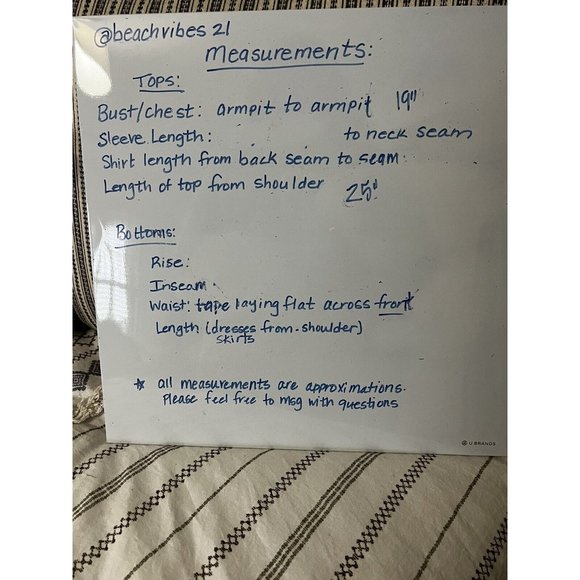 @beachvibes 21
Measurements:
Tops:
Bust/chest: armpit to armpit 19"
Sleeve Length: to neck seam
Shirt length from back seam to seam
Length of top from shoulder 25"
Bottoms:
Rise:
Inseam
Waist: tape laying flat across front
Length (dresses from shoulder)
skirts
* all measurements are approximations.
Please feel free to msg with questions
U BRANDS